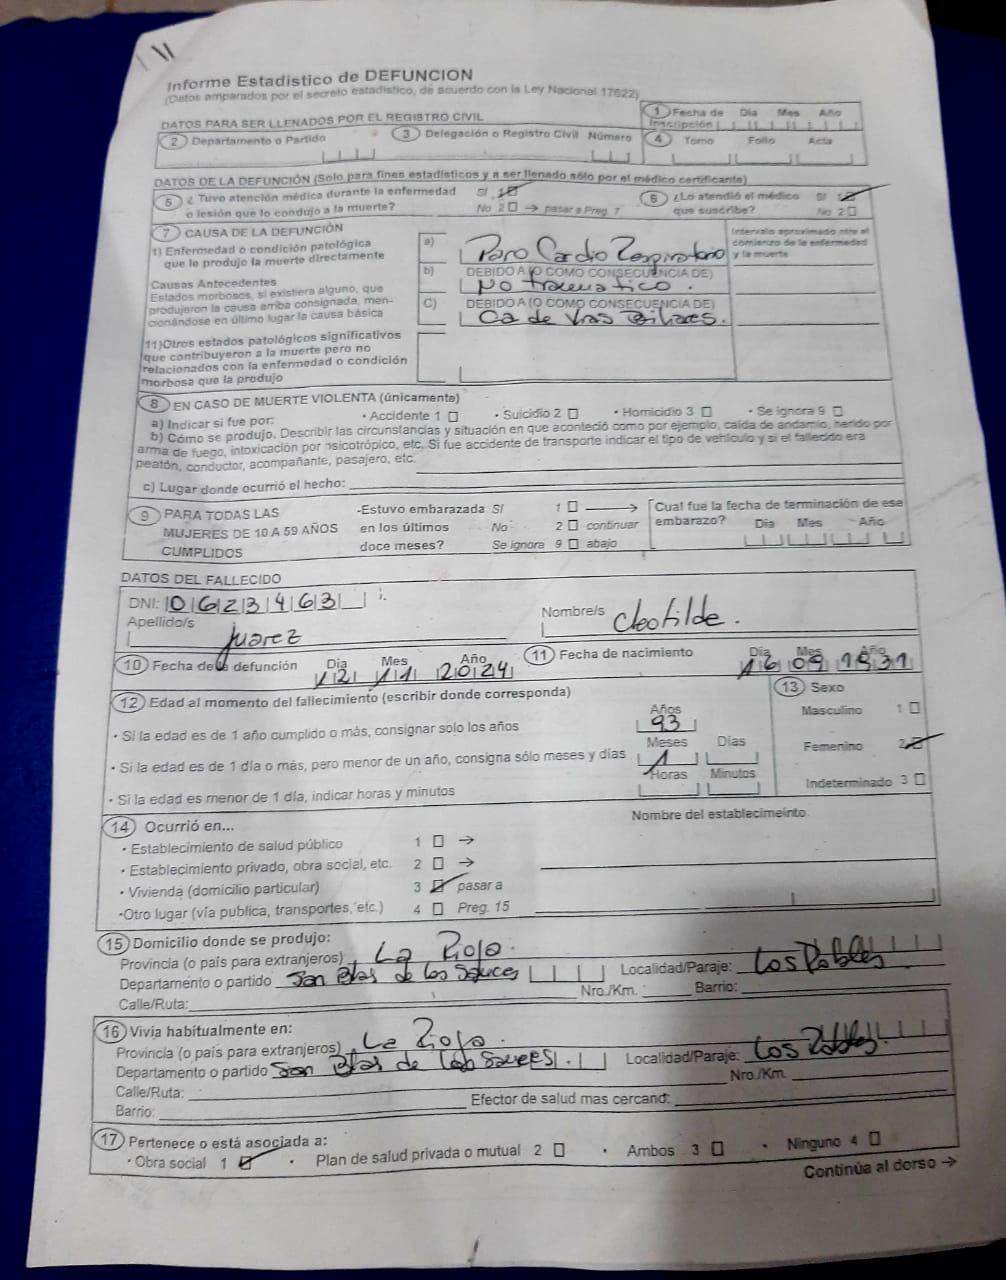 Informe Estadístico de DEFUNCION
(Datos amparados por el secreto estadístico, de acuerdo con la Ley Nacional 17622)
DATOS PARA SER LLENADOS POR EL REGISTRO CIVIL
1 Fecha de Inscripción Día Mes Año
2 Departamento o Partido 3 Delegación o Registro Civil Número 4 Tomo Folio Acta
DATOS DE LA DEFUNCIÓN (Solo para fines estadísticos y a ser llenado sólo por el médico certificante)
5 ¿Tuvo atención médica durante la enfermedad SI 1 6 ¿Lo atendió el médico SI 1
o lesión que lo condujo a la muerte? No 2 → pasar a Preg. 7 que suscribe? No 2
7 CAUSA DE LA DEFUNCIÓN Intervalo aproximado ntre el
1) Enfermedad o condición patológica a) Paro Cardio Respiratorio comienzo de la enfermedad
que le produjo la muerte directamente y la muerte
b) DEBIDO A (O COMO CONSECUENCIA DE)
Causas Antecedentes No traumatico.
Estados morbosos, si existiera alguno, que
produjeron la causa arriba consignada, men- C) DEBIDO A (O COMO CONSECUENCIA DE)
cionándose en último lugar la causa básica Ca de Vias Biliares.
11)Otros estados patológicos significativos
que contribuyeron a la muerte pero no
relacionados con la enfermedad o condición
morbosa que la produjo
8 EN CASO DE MUERTE VIOLENTA (únicamente)
a) Indicar si fue por: • Accidente 1 • Suicidio 2 • Homicidio 3 • Se ignora 9
b) Cómo se produjo. Describir las circunstancias y situación en que aconteció como por ejemplo, caída de andamio, herido por
arma de fuego, intoxicación por psicotrópico, etc. Si fue accidente de transporte indicar el tipo de vehículo y si el fallecido era
peatón, conductor, acompañante, pasajero, etc.
c) Lugar donde ocurrió el hecho:
9 PARA TODAS LAS -Estuvo embarazada SI 1 → Cual fue la fecha de terminación de ese
MUJERES DE 10 A 59 AÑOS en los últimos No 2 continuar embarazo? Día Mes Año
CUMPLIDOS doce meses? Se ignora 9 abajo
DATOS DEL FALLECIDO
DNI: 0 6 2 3 4 6 3
Apellido/s Juarez Nombre/s Cleotilde.
10 Fecha de la defunción Día 12 Mes 11 Año 2024 11 Fecha de nacimiento Día 16 Mes 09 Año 1931
12 Edad al momento del fallecimiento (escribir donde corresponda) 13 Sexo
Años Masculino 1
• Si la edad es de 1 año cumplido o más, consignar solo los años 93
Meses Días Femenino 2
• Si la edad es de 1 día o más, pero menor de un año, consigna sólo meses y días 1
Horas Minutos Indeterminado 3
• Si la edad es menor de 1 día, indicar horas y minutos
14 Ocurrió en... Nombre del establecimeinto
• Establecimiento de salud público 1 →
• Establecimiento privado, obra social, etc. 2 →
• Vivienda (domicilio particular) 3 pasar a
•Otro lugar (vía publica, transportes, etc.) 4 Preg. 15
15 Domicilio donde se produjo:
Provincia (o país para extranjeros) La Rioja.
Departamento o partido San Blas de Los Sauces Localidad/Paraje: Los Robles
Calle/Ruta: Nro./Km. Barrio:
16 Vivía habitualmente en:
Provincia (o país para extranjeros) La Rioja.
Departamento o partido San Blas de Los Sauces. Localidad/Paraje: Los Robles.
Calle/Ruta: Nro./Km.
Barrio: Efector de salud mas cercano:
17 Pertenece o está asociada a:
• Obra social 1 • Plan de salud privada o mutual 2 • Ambos 3 • Ninguno 4
Continúa al dorso →